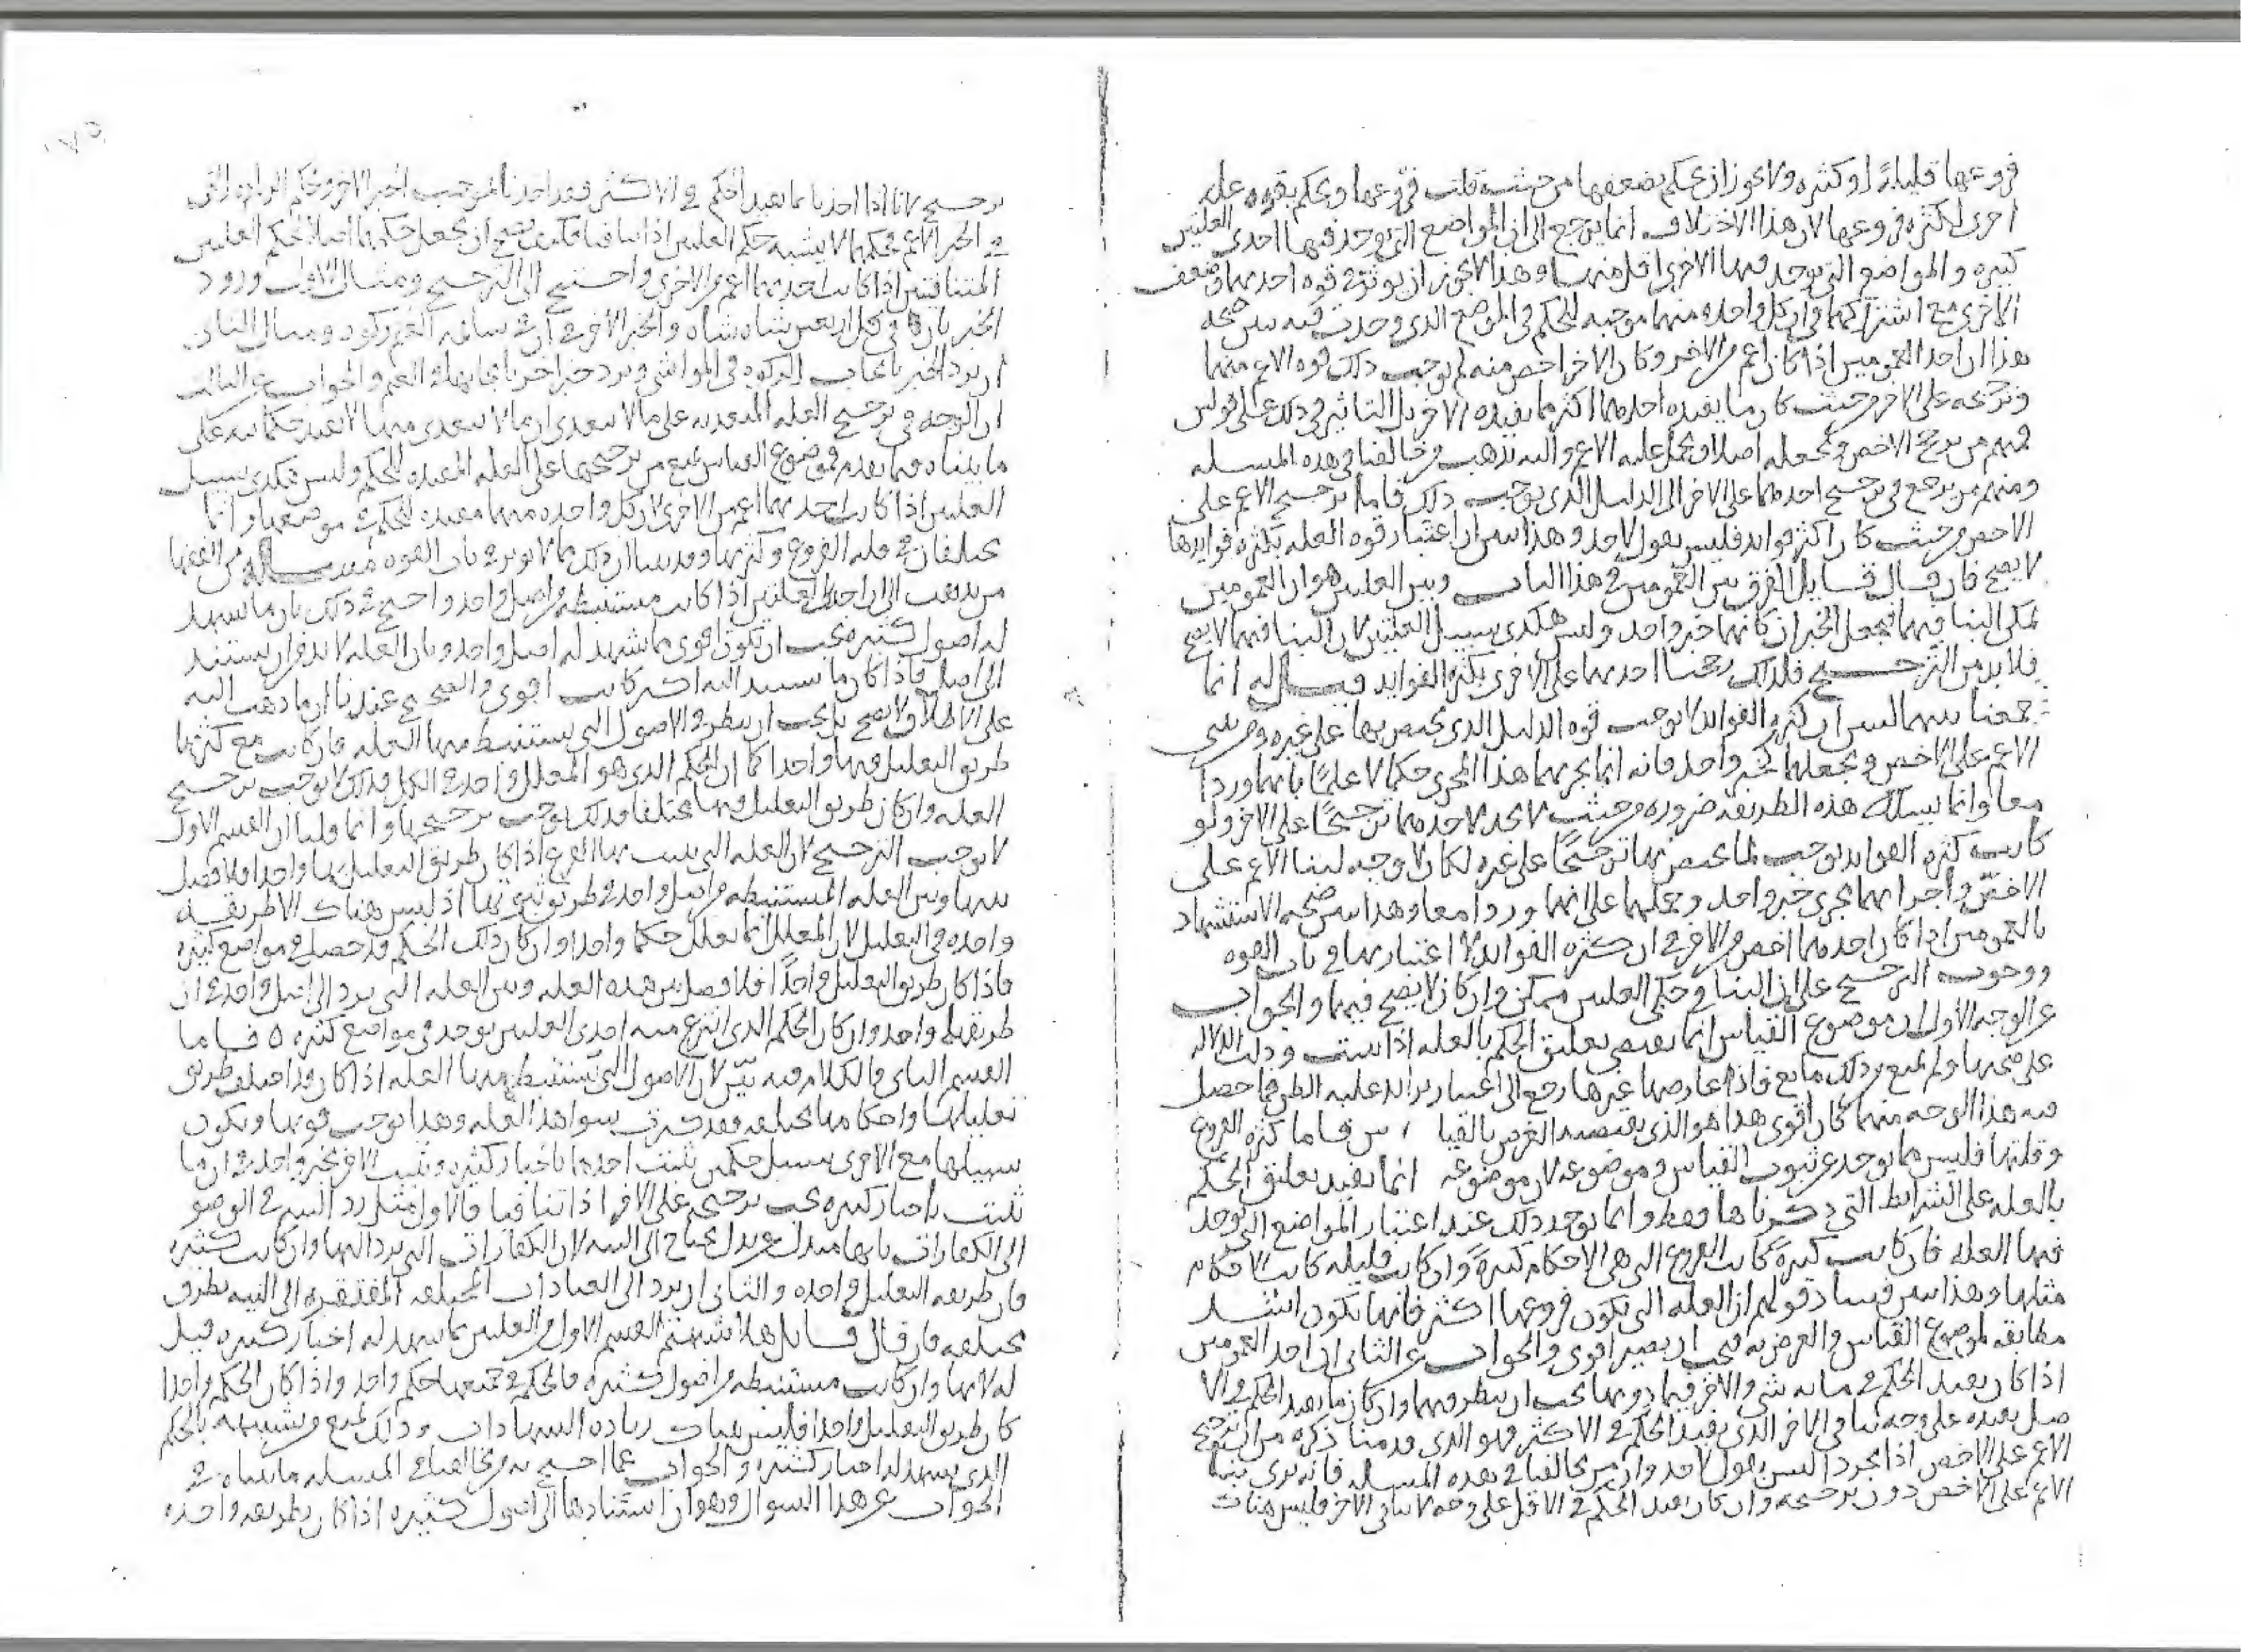 فروعها قليلة او كثيره ولا يجوز ان يحكم بضعفها من حيث قلت فروعها ويحكم بقوه عله
اخرى لكثره فروعها لان هذا الاختلاف انما يرجع الى ان المواضع التي توجد فيها احدى العلتين
كثيره والمواضع التي توجد فيها الاخرى اقل منها وهذا لا يجوز ان يوثر في قوه احديهما وضعف
الاخرى مع اشتراكهما في ان كل واحده منهما موجبه للحكم في الموضع الذي وجدت فيه يبين صحه
هذا ان احد العمومين اذا كان اعم من الاخر وكان الاخر اخص منه لم يوجب ذلك قوه الاعم منهما
وترجحه على الاخر من حيث كان ما يفيده احدهما اكثر مما يفيده الاخر بل الناس في ذلك على قولين
فمنهم من يرجح الاخص ويجعله اصلا ويحمل عليه الاعم واليه يذهب من خالفنا في هذه المسله
ومنهم من يرجع في ترجيح احدهما على الاخر الى الدليل الذي يوجب ذلك فاما ترجيح الاعم على
الاخص من حيث كان اكثر فوايد فليس بقول لاحد وهذا يبين ان اعتبار قوه العله بكثره فوايدها
لا يصح فان قال قايل الفرق بين العمومين في هذا الباب وبين العلتين هو ان العمومين
يمكن البنا فيهما فيجعل الخبران كانهما خبر واحد وليس هكذى سبيل العلتين لان البنا فيهما لا يصح
فلا بد من الترجيح فلذلك رجحنا احديهما على الاخرى بكثره الفوايد قيل له انما
جمعنا بينهما لنبين ان كثره الفوايد لا توجب قوه الدليل الذي يختص بها على غيره ومن يبني
الاعم على الاخص ويجعلهما كخبر واحد فانه انما يجريهما هذا المجرى حكما لا علما بانهما وردا
معا وانما يسلك هذه الطريقه ضروره من حيث لا يجد لاحدهما ترجيحا على الاخر ولو
كانت كثره الفوايد توجب لما يختص بها ترجيحا على غيره لكان لا وجه لبنا الاعم على
الاخص واجرايهما مجرى خبر واحد وحملهما على انهما وردا معا وهذا يبين صحه الاستشهاد
بالعمومين اذا كان احدهما اخص من الاخر في ان كثره الفوايد لا اعتبار بها في باب القوه
ووجوب الترجيح على ان البنا في حكم العلتين ممكن وان كان لا يصح فيهما والجواب
عن الوجه الاول ان موضوع القياس انما يقتضي تعليق الحكم بالعله اذا ثبتت ودلت الدلاله
على صحتها ولم يمنع من ذلك مانع فاذا عارضها غيرها رجع الى اعتبار تزايد غلبه الظن فما حصل
فيه هذا الوجه منهما كان اقوى هذا هو الذي يقتضيه الغرض بالقياس فاما كثره الفروع
وقلتها فليس مما يوجد عن ثبوت القياس وموضوعه لان موضوعه انما يفيد تعليق الحكم
بالعله على الشرايط التي ذكرناها فقط وانما يوجد ذلك عند اعتبار المواضع التي توجد
فيها العله فان كانت كثيره كانت الفروع التي هي الاحكام كثيرة وان كانت قليله كانت الاحكام
مثلها وهذا يبين فساد قولهم ان العله التي تكون فروعها اكثر فانها تكون اشد
مطابقه لموضوع القياس والغرض به فيجب ان يصير اقوى والجواب عن الثاني ان احد العمومين
اذا كان يفيد الحكم في مايه شي والاخر فيما دونها يجب ان ينظر فيهما وان كان ما يفيد الحكم في الا
قل يفيده على وجه ينافي الاخر الذي يفيد الحكم في الاكثر فهو الذي قدمنا ذكره من ان ترجيح
الاعم على الاخص اذا تجردا ليس بقول لاحد وان من يخالفنا في هذه المسله فانه يرى بنا
الاعم على الاخص دون ترجيحه وان كان يفيد الحكم في الاقل على وجه لا ينافي الاخر فليس هناك
ترجيح لانا اذا اخذنا بما يفيد الحكم في الاكثر فقد اخذنا بموجب الخبر الاخر وحكم الزياده التي
في الخبر الاعم فحكمهما لا يشبه حكم العلتين اذا تنافتا فكيف يصح ان يجعل حكمهما اصلا لحكم العلتين
المتنافيتين اذا كانت احديهما اعم من الاخرى واحتيج الى الترجيح ومثال الاول ورود
الخبر بان في كل اربعين شاه شاه والخبر الاخر في ان في سايمه الغنم زكوه ومثال الثاني
ان يرد الخبر بايجاب الزكوه في المواشي ويرد خبر اخر بايجابها في الغنم والجواب عن الثالث
ان الوجه في ترجيح العله المتعديه على ما لا يتعدى ان ما لا يتعدى منها لا تفيد حكما فيه على
ما بيناه فيما تقدم فموضوع القياس يمنع من ترجيحها على العله المفيده للحكم وليس هكذى سبيل
العلتين اذا كانت احديهما اعم من الاخرى لان كل واحده منهما مفيده للحكم في موضعها وانما
يختلفان في قله الفروع وكثرتها وقد بينا ان ذلك مما لا يوثر في باب القوه مسله من الفقها
من يذهب الى ان احدى العلتين اذا كانت مستنبطه من اصل واحد واحتج في ذلك بان ما شهد
له اصول كثيره فيجب ان تكون اقوى مما شهد له اصل واحد وبان العله لا بد من ان يستند
الى اصل فاذا كان ما يستند اليه اكثر كانت اقوى والصحيح عندنا ان ما ذهب اليه
على الاطلاق لا يصح بل يجب ان ينظر في الاصول التي يستنبط منها العله فان كانت مع كثرتها
طريق التعليل فيها واحدا كما ان الحكم الذي هو المعلل واحد في الكل فذلك لا يوجب ترجيح
العله وان كان طريق التعليل فيها مختلفا فذلك يوجب ترجيحها وانما قلنا ان القسم الاول
لا يوجب الترجيح لان العله التي يثبت بها الفرع اذا كان طريق التعليل بها واحدا فلا فصل
بينها وبين العله المستنبطه من اصل واحد في طريق ثبوتها اذ ليس هناك الا طريقه
واحده في التعليل لان المعلل انما يعلل حكما واحدا وان كان ذلك الحكم قد حصل في مواضع كثيره
فاذا كان طريق التعليل واحدا فلا فصل بين هذه العله وبين العله التي ترد الى اصل واحد في ان
طريقهما واحد وان كان الحكم الذي انتزع منه احدى العلتين يوجد في مواضع كثيره ٥ فاما
القسم الثاني فالكلام فيه بين لان الاصول التي تستنبط منها العله اذا كان قد اختلف طريق
تعليلها واحكامها مختلفه فقد كثرت شواهد العله وهذا يوجب قوتها وتكون
سبيلها مع الاخرى سبيل حكمين يثبت احدهما باخبار كثيره ويثبت الاخر بخبر واحد في ان ما
ثبت باخبار كثيره يجب ترجيحه على الاخر اذا تنافيا فالاول مثل رد التيمم في الوضو
الى الكفارات بانها مبدل عن بدل يحتاج الى النيه لان الكفارات التي يرد اليها وان كانت كثيره
فان طريقه التعليل واحده والثاني ان يرد الى العبادات المختلفه المفتقره الى النيه بطرق
مختلفه فان قال قايل هلا شبهتم القسم الاول من العلتين بما يشهد له اخبار كثيره قيل
له لانها وان كانت مستنبطه من اصول كثيره فالحكم في جميعها حكم واحد واذا كان الحكم واحدا
كان طريق التعليل واحدا فليس هناك زياده الشهادات وذلك يمنع من تشبيهه بالحكم
الذي يشهد له اخبار كثيره والجواب عما احتج به من خالفنا في المسله ما بيناه في
الجواب عن هذا السوال وهو ان استنادها الى اصول كثيره اذا كان بطريقه واحده